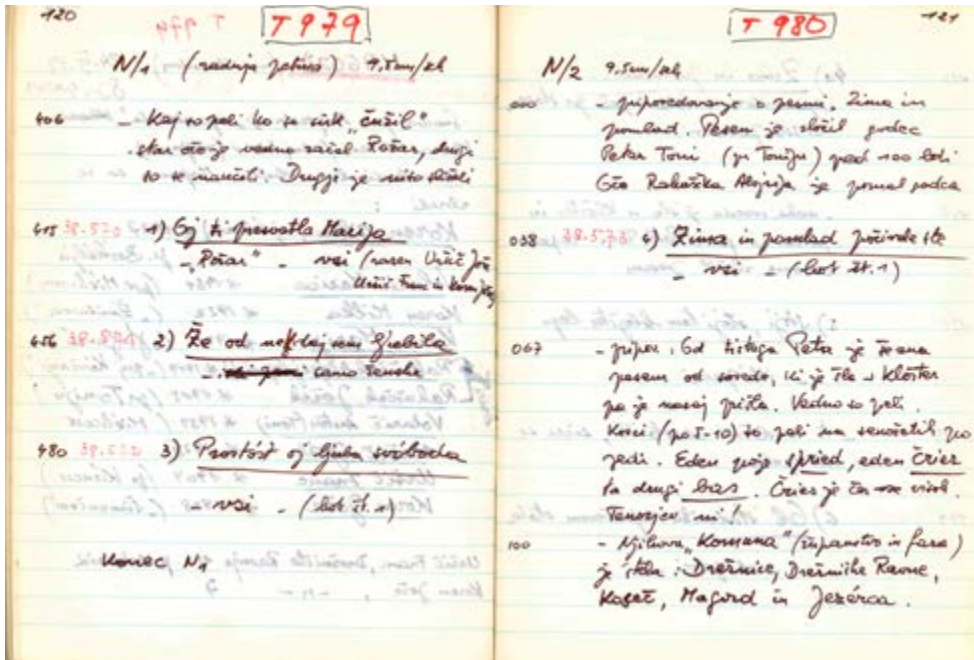 120
T 979
N/1 (zadnja jetura) 9,5 cm/sek
406 - Kaj so peli ko se sirk "čužil"
star oče je vedno začel Požar, drugi
so se naučili. Drugje je niso znali
415 38.570 1) Oj ti presvetla Marija
- "Požar" - vsi (razen Uršič Jože
Uršič Franc in Koren Jože)
456 2) Že od nekdaj sem ljubila
- samo ženske
480 3) Prostóst oj ljuba svóboda
- vsi - (kot št. 1)
Konec N1
121
T 980
N/2 9,5 cm/sek
000 - pripovedovanje o pesmi. Zima in
pomlad. Pesem je zložil godec
Peter Toni (pr Toniju) pred 100 leti
Gčo Rakuščka Alojzija je poznal godca
038 38.573 4) Zima in pomlad
- vsi - (kot št. 1)
067 - pripov. Od tistega Petra je žena
pesem od soredo, ki je šla v Klošter
pa je nazaj prišla. Vedno so peli.
Kosci (po 5-10) so peli na senožetih po
jedi. Eden poje spried, eden čries
ta drugi bas. Čries je čez vse visok.
Tenorjev ni!
100 - Njihova "Komuna" (županstvo in fara)
je štela: Drežnice, Drežniške Ravne,
Koseč, Magozd in Jezérca.